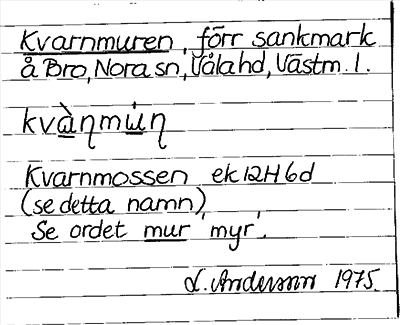 Kvarnmuren, förr sankmark
å Bro, Nora sn, Våla hd, Västm. l.
kvàηmúη
Kvarnmossen ek 12H 6d
(se detta namn).
Se ordet mur 'myr'.
L. Andersson 1975.